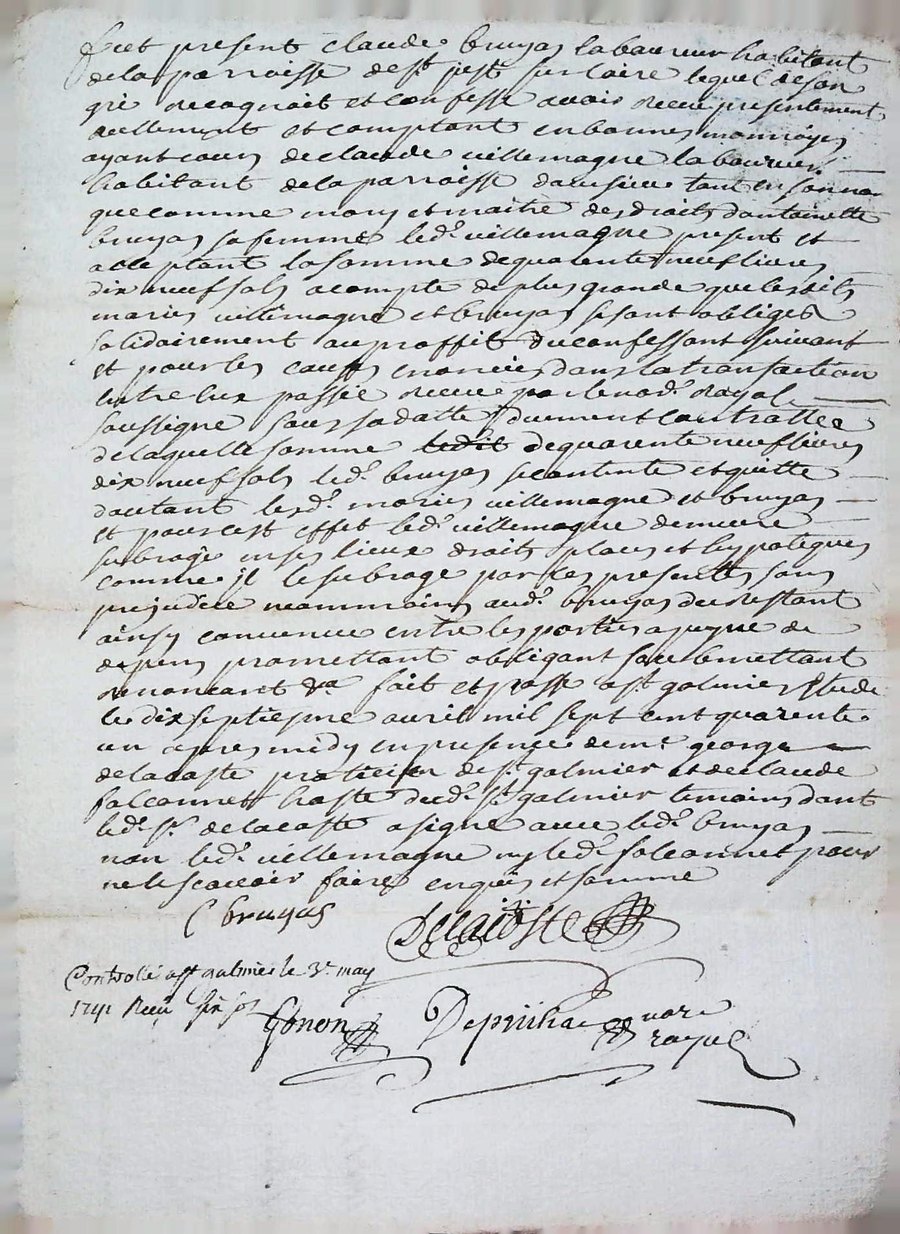 fut present claude bruyas laboureur habitant
de la parroisse de st just sur laire lequel de son
gré recognoit et confesse avoir receu presentement
reellement et comptant en bonnes monnoyes
ayant cours de claude villemagne laboureur
habitant de la parroisse tant en son nom
que comme mary et maitre des droits dantoinette
bruyas sa femme led. villemagne present et
acceptant la somme de quarente neuf livres
dix neuf sols a compte de plus grande que lesdits
maries villemagne et bruyas se sont obliges
solidairement au proffit du confessant suivant
et pour les causes enoncées dans la transaction
entre eux passée receue par le no.re royal
soussigne sous sa datte duement controllée
de laquelle somme ledit de quarente neuf livres
dix neuf sols led. bruyas se contente et quitte
dautant lesd. maries villemagne et bruyas
et pour cest effet led. villemagne demeure
subrogé en ses lieux droits places et hypoteques
comme il le subroge par les presentes sans
prejudice neammoins aud. bruyas du restant
ainsy convenu entre les parties a peyne de
depens promettant obligant soubmettant
renoncant &a fait et passe a st galmier etude
le dix septiesme avril mil sept cent quarente
un apres midy en presence de me. george
delacoste praticien de st galmier et de claude
falconnet hoste dud. st galmier temoins dont
led. sr. delacoste a signe avec led. bruyas
non led. villemagne ny led. falconnet pour
ne le scavoir faire enquis et somme
C bruyas
Delacoste
Controllé a st galmier le 3e may
1741 Receu six s
Gonon
no.re
royal